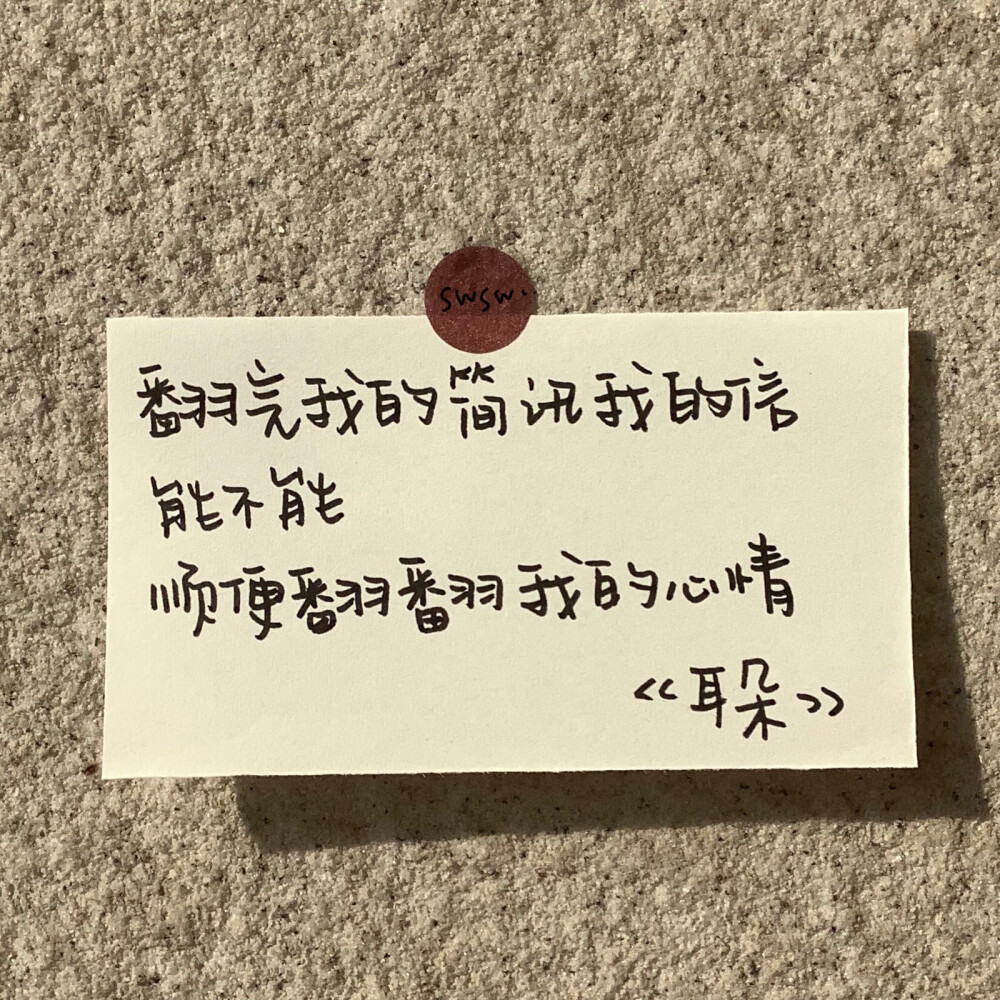 swsw.
翻完我的简讯我的信
能不能
顺便翻翻我的心情
《耳朵》